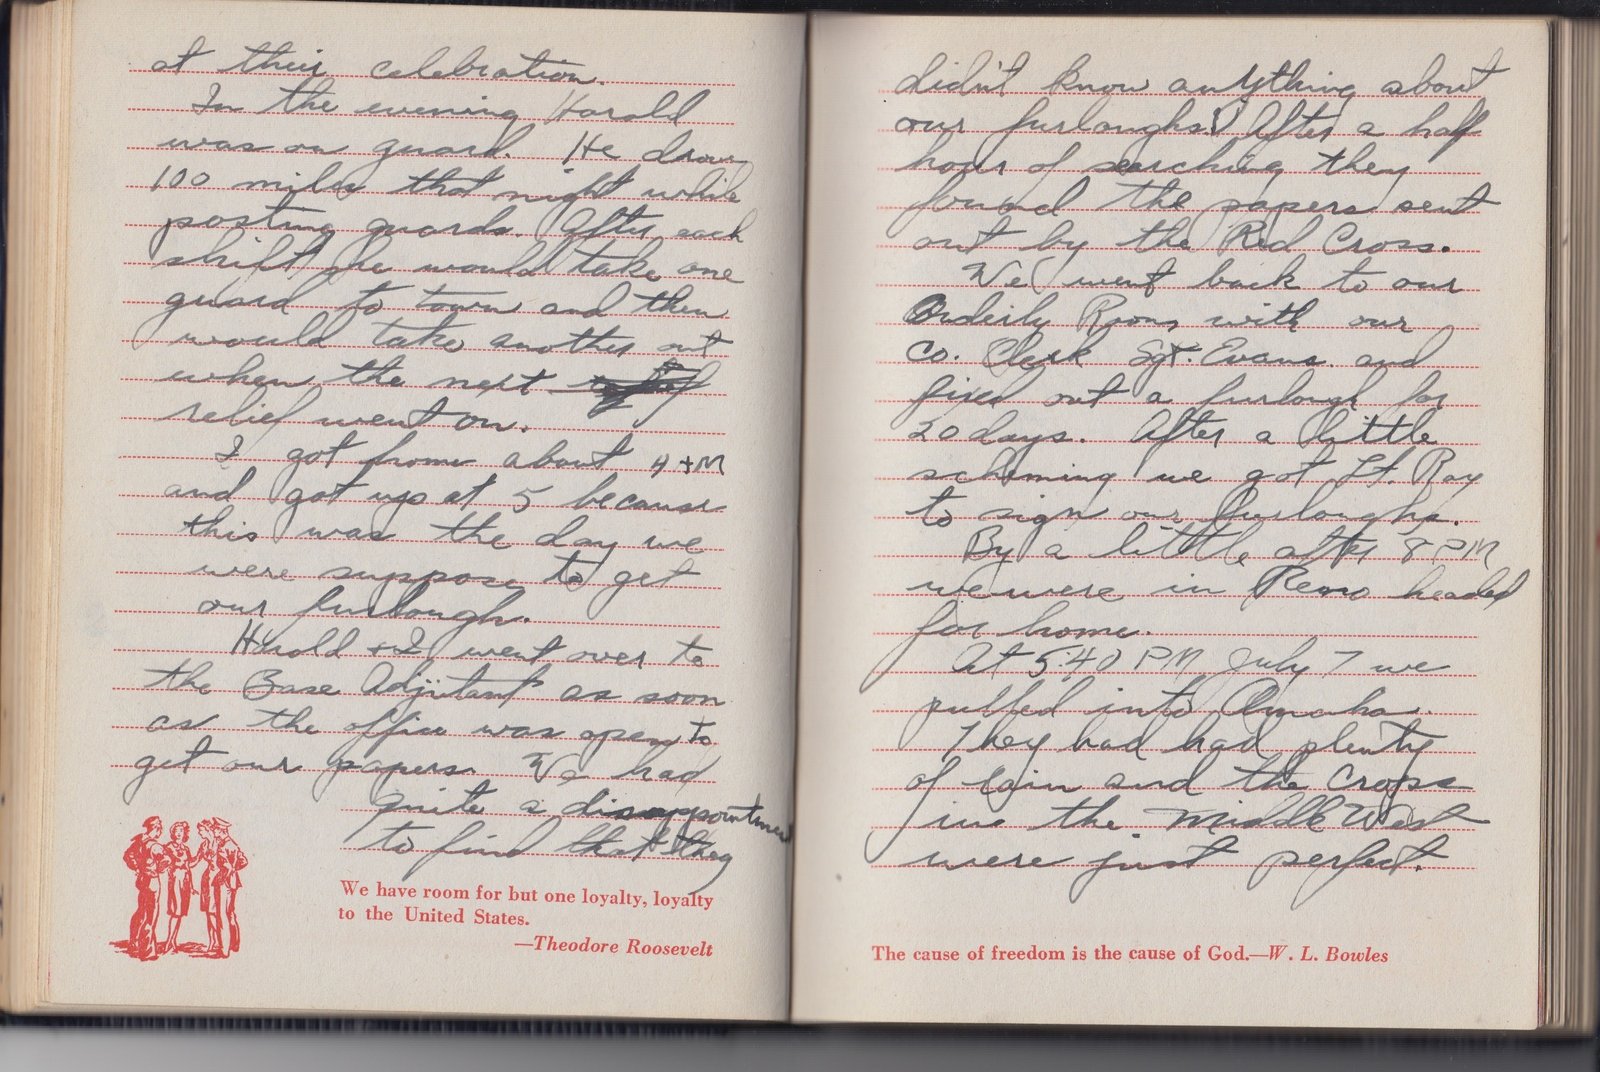 at their celebration.
In the evening Harold
was on guard. He drove
100 miles that night while
posting guards. After each
shift he would take one
guard to town and then
would take another out
when the next
relief went on.
I got home about 4 AM
and got up at 5 because
this was the day we
were suppose to get
our furlough.
Harold + I went over to
the Base Adjutant as soon
as the office was open to
get our papers. We had
quite a disappointment
to find that they
We have room for but one loyalty, loyalty
to the United States.
—Theodore Roosevelt
didn't know anything about
our furloughs. After a half
hour of searching they
found the papers sent
out by the Red Cross.
We went back to our
Orderly Room with our
Co. Clerk Sgt. Evans and
fixed out a furlough for
20 days. After a little
scheming we got Lt. Ray
to sign our furloughs.
By a little after 8 PM
we were in Reno headed
for home.
At 5:40 PM July 7 we
pulled into Omaha.
They had had plenty
of rain and the crops
in the Middle West
were just perfect.
The cause of freedom is the cause of God.—W. L. Bowles